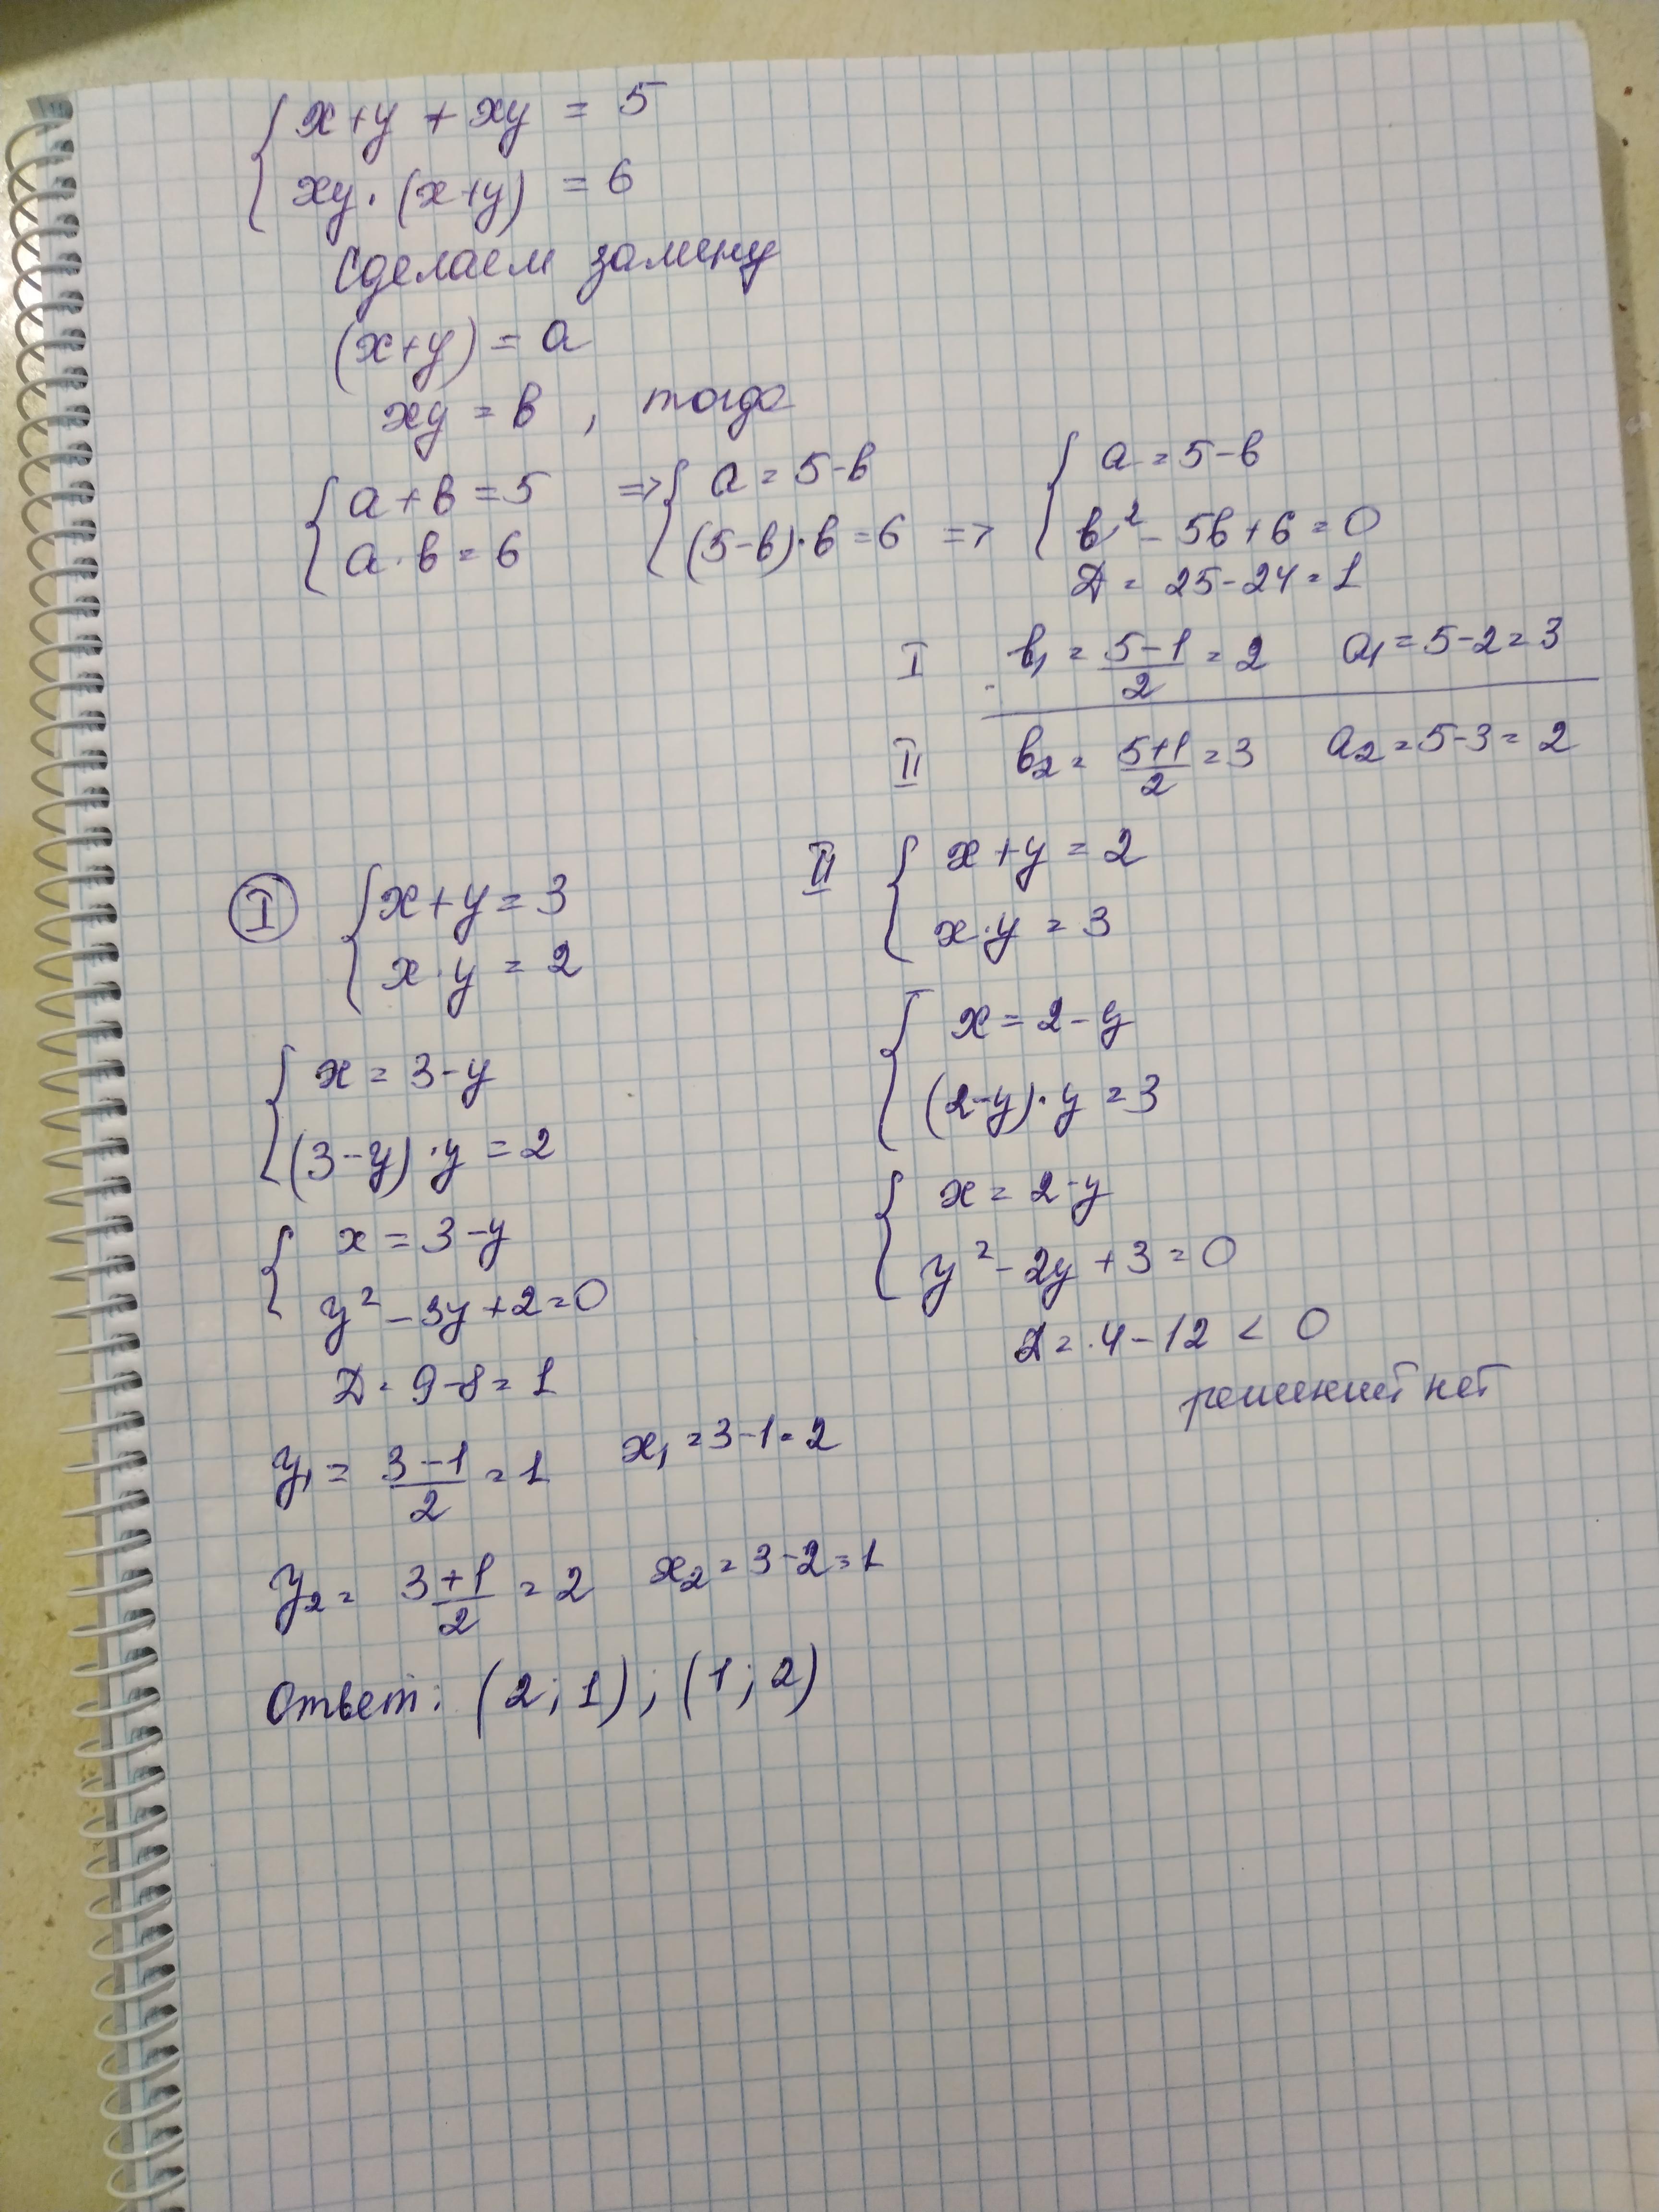 { x+y + xy = 5
{ xy · (x+y) = 6
Сделаем замену
(x+y) = a
xy = b , тогда
{ a + b = 5 => { a = 5-b => { a = 5-b
{ a · b = 6 { (5-b)·b = 6 { b² - 5b + 6 = 0
D = 25-24 = 1
I b₁ = (5-1)/2 = 2 a₁ = 5-2 = 3
II b₂ = (5+1)/2 = 3 a₂ = 5-3 = 2
I { x+y = 3
{ x · y = 2
{ x = 3-y
{ (3-y) · y = 2
{ x = 3-y
{ y² - 3y + 2 = 0
D = 9-8 = 1
y₁ = (3-1)/2 = 1 x₁ = 3-1 = 2
y₂ = (3+1)/2 = 2 x₂ = 3-2 = 1
II { x+y = 2
{ x·y = 3
{ x = 2-y
{ (2-y)·y = 3
{ x = 2-y
{ y² - 2y + 3 = 0
D = 4-12 < 0
решений нет
Ответ: (2; 1); (1; 2)